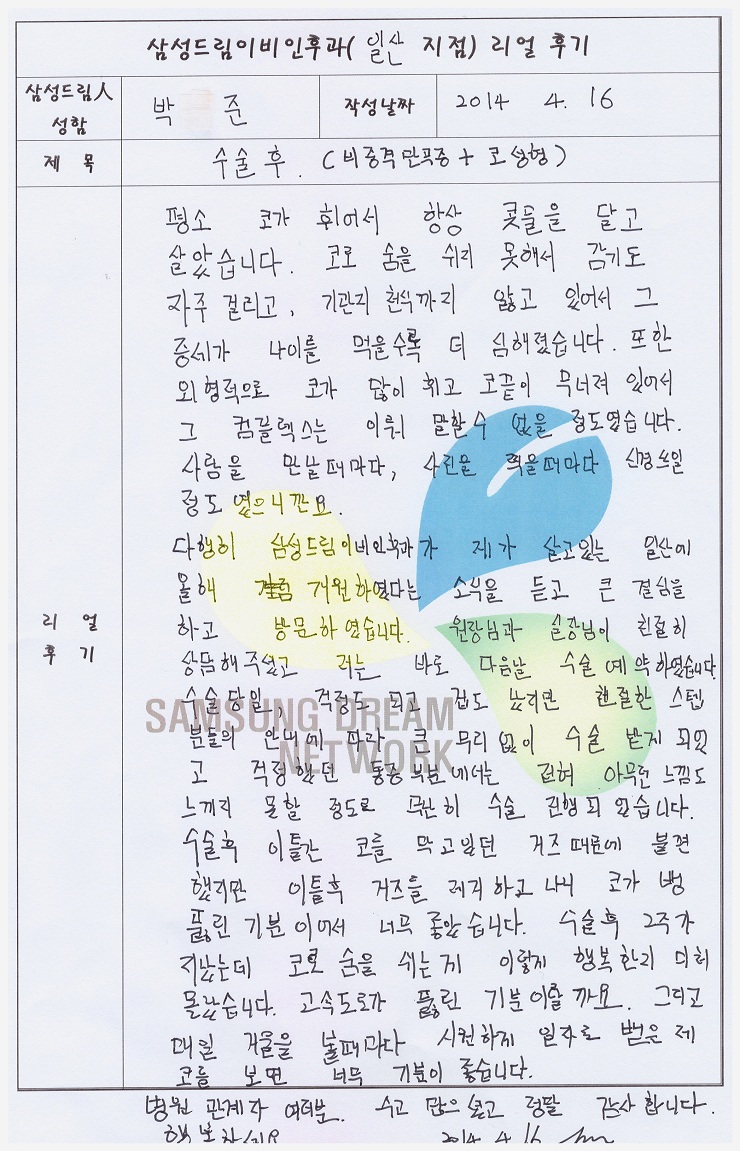 삼성드림이비인후과( 일산 지점) 리얼 후기
삼성드림人 성함
박 준
작성날짜
2014 4. 16
제 목
수술 후. (비중격만곡증 + 코성형)
리 얼 후 기
평소 코가 휘어서 항상 콧물을 달고
살았습니다. 코로 숨을 쉬지 못해서 감기도
자주 걸리고, 기관지 천식까지 앓고 있어서 그
증세가 나이를 먹을수록 더 심해졌습니다. 또한
외형적으로 코가 많이 휘고 코끝이 무너져 있어서
그 컴플렉스는 이뤄 말할수 없을 정도였습니다.
사람을 만날때마다, 사진을 찍을때마다 신경쓰일
정도 였으니깐요.
다행히 삼성드림이비인후과가 제가 살고있는 일산에
올해 개원하였다는 소식을 듣고 큰 결심을
하고 방문하였습니다. 원장님과 실장님이 친절히
상담해주셨고 저는 바로 다음날 수술예약하였습니다
수술당일, 걱정도 되고 겁도 났지만 친절한 스텝
분들의 안내에 따라 큰 무리없이 수술 받게 되었
고 걱정했던 통증부분에서는 전혀 아무런 느낌도
느끼지 못할 정도로 무난히 수술 진행되었습니다.
수술후 이틀간 코를 막고있던 거즈때문에 불편
했지만 이틀후 거즈를 제거하고 나니 코가 뻥
뚫린 기분이어서 너무 좋았습니다. 수술후 2주가
지났는데 코로 숨을 쉬는게 이렇게 행복한지 미처
몰랐습니다. 고속도로가 뚫린 기분이랄까요. 그리고
매일 거울을 볼때마다 시원하게 일자로 뻗은 제
코를 보면 너무 기분이 좋습니다.
병원 관계자 여러분. 수고 많으셨고 정말 감사합니다.
행복하세요 2014. 4. 16
SAMSUNG DREAM
NETWORK